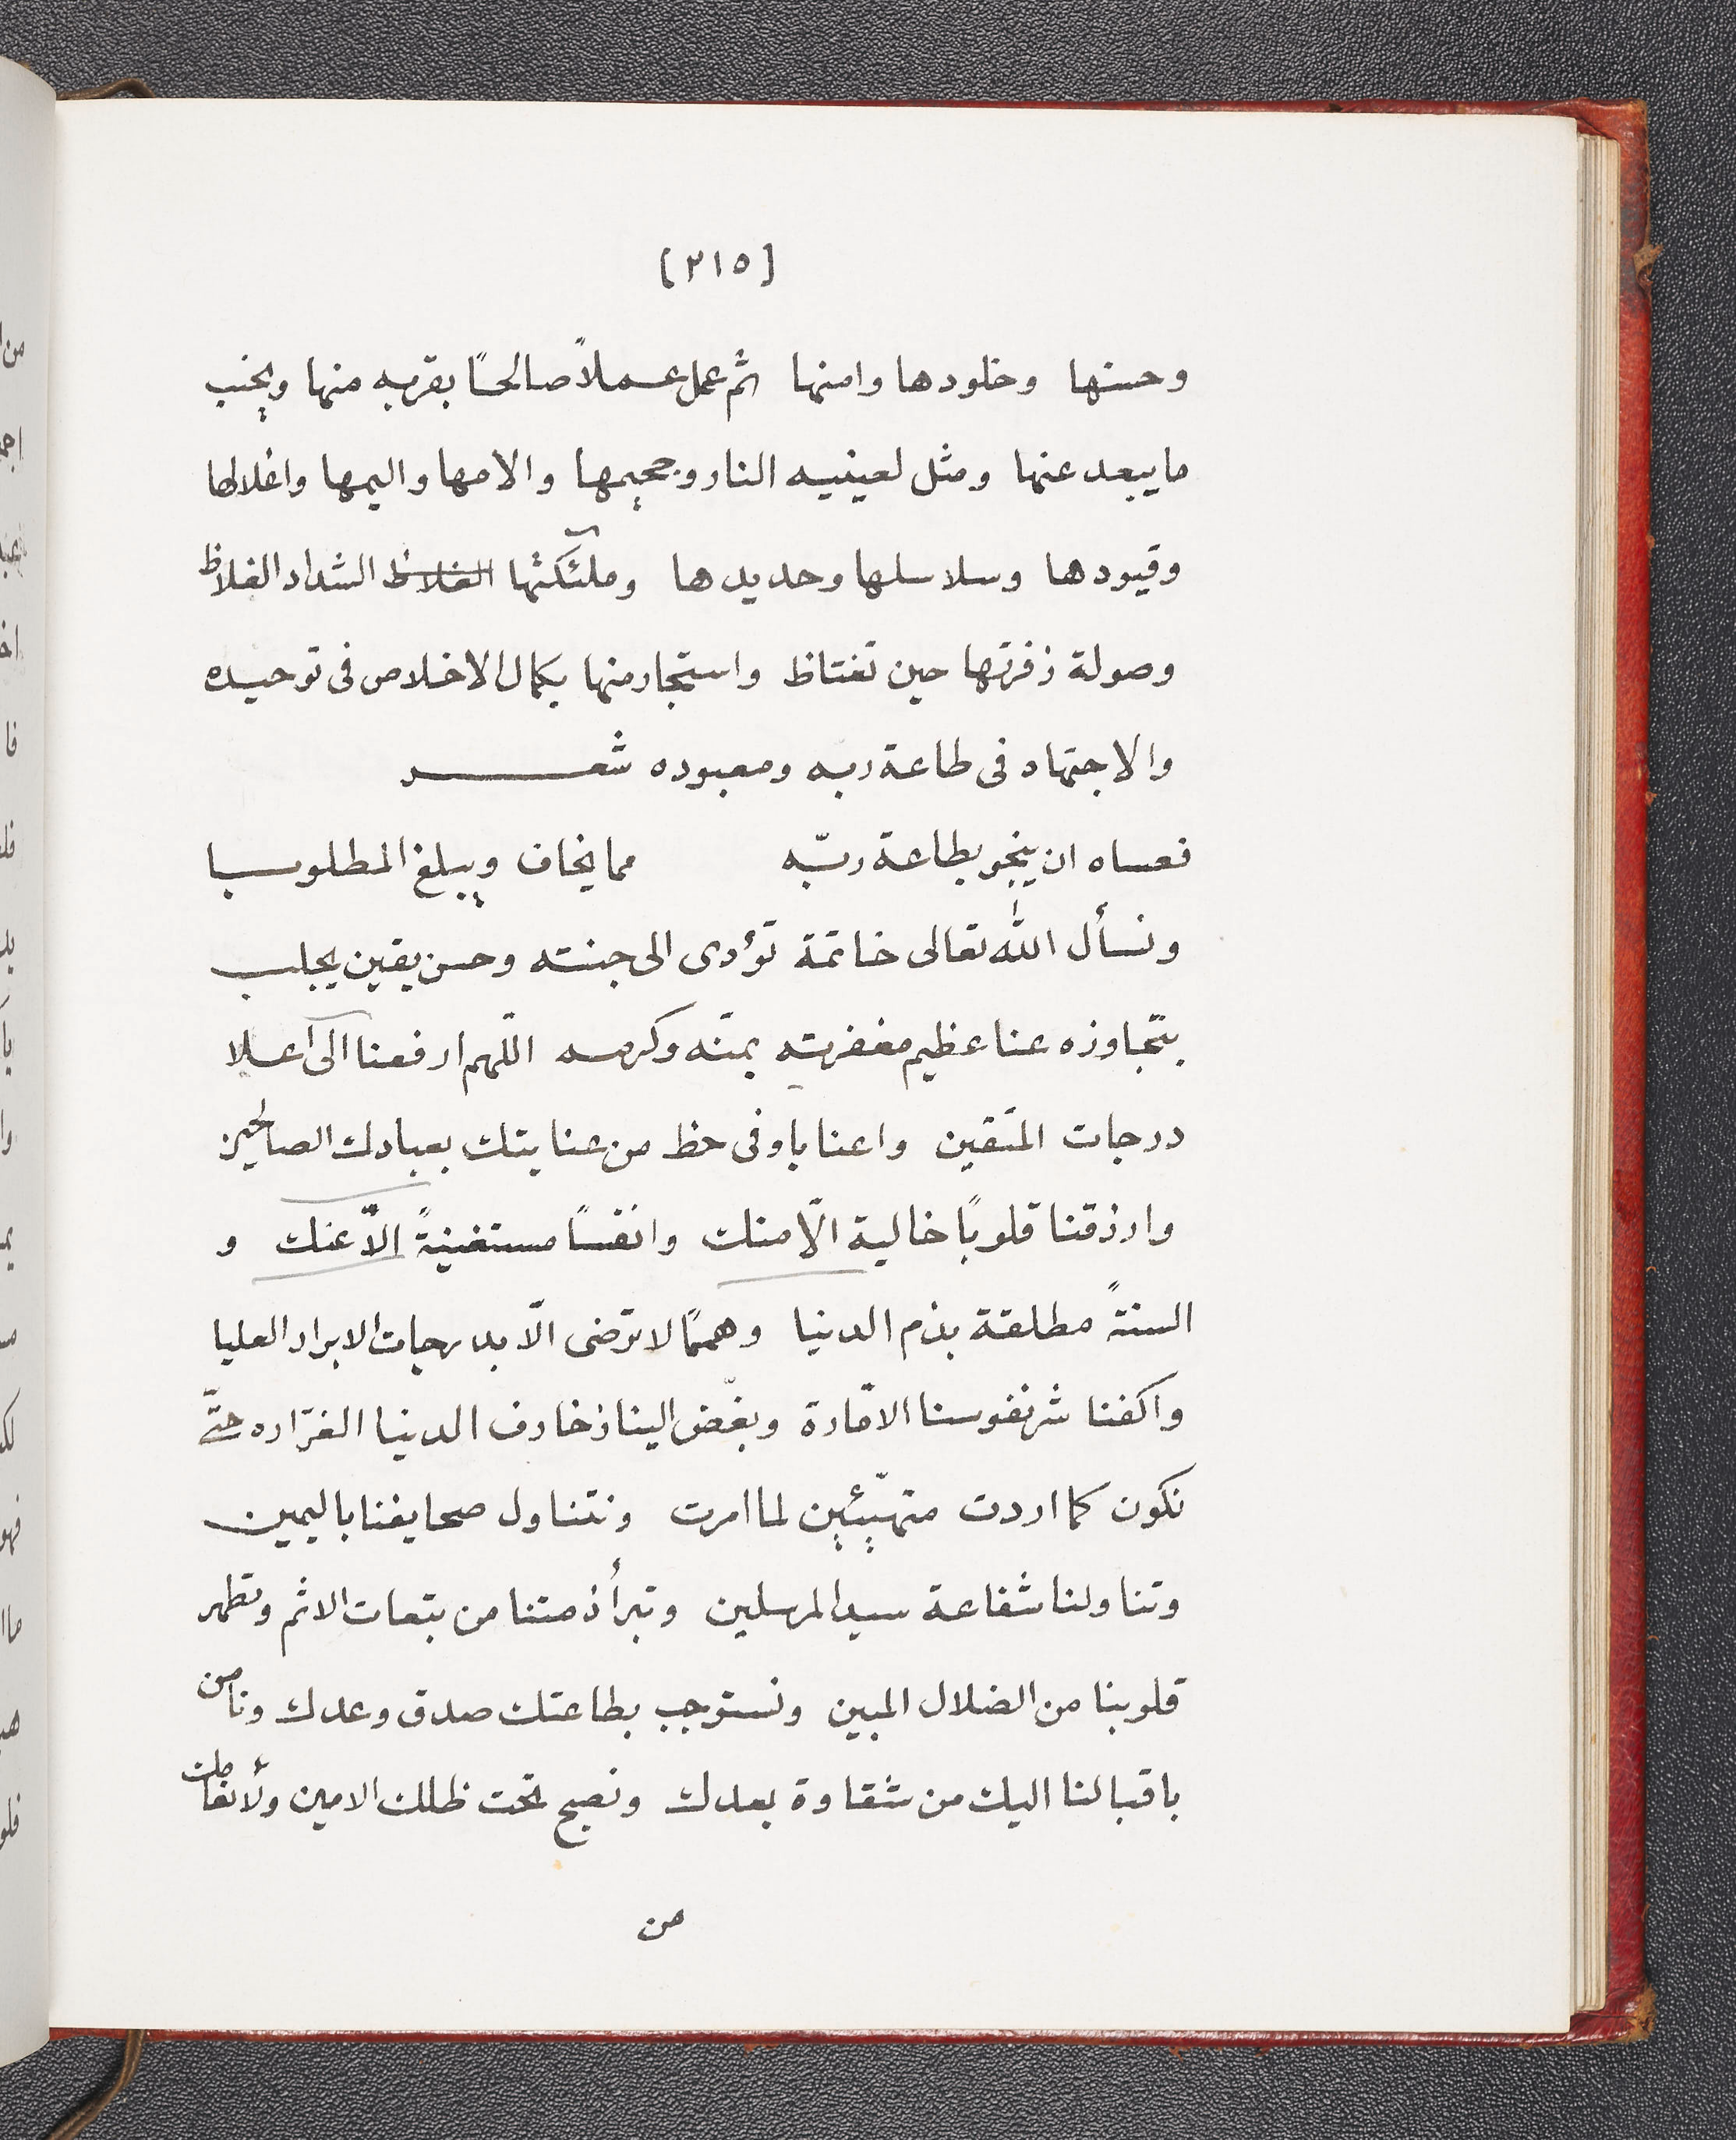 [٢١٥]
وحسنها وخلودها وامنها ثم عمل عملاً صالحًا يقربه منها ويجنب
ما يبعد عنها ومثل لعينيه النار وجحيمها والامها واليمها واغلالها
وقيودها وسلاسلها وحديدها وملئكتها الغلاظ الشداد الغلاظ
وصولة زفرتها حين تغتاظ واستجار منها بكمال الاخلاص فى توحيده
والاجتهاد فى طاعة ربه ومعبوده شعر
فعساه ان ينجو بطاعة ربّه مما يخاف ويبلغ المطلوبا
ونسأل الله تعالى خاتمة تؤدى الى جنته وحسن يقين يجلب
بتجاوزه عنا عظيم مغفرته بمنّه وكرمه اللّهم ارفعنا الى اعلا
درجات المتقين واعنا باوفى حظ من عنايتك بعبادك الصالحين
وارزقنا قلوبًا خالية الّا منك وانفسًا مستغنيةً الّا عنك و
السنةً مطلقة بذم الدنيا وهممًا لا ترضى الّا بدرجات الابرار العليا
واكفنا شر نفوسنا الامّارة وبغّض الينا زخارف الدنيا الغرّاره حتّى
نكون كما اردت متهيّئين لما امرت ونتناول صحايفنا باليمين
وتناولنا شفاعة سيد المرسلين وتبرأ ذمتنا من تبعات الاثم وتطهر
قلوبنا من الضلال المبين ونستوجب بطاعتك صدق وعدك ونامن
باقبالنا اليك من شقاوة بعدك ونصبح تحت ظلك الامين ولأنعامك
من